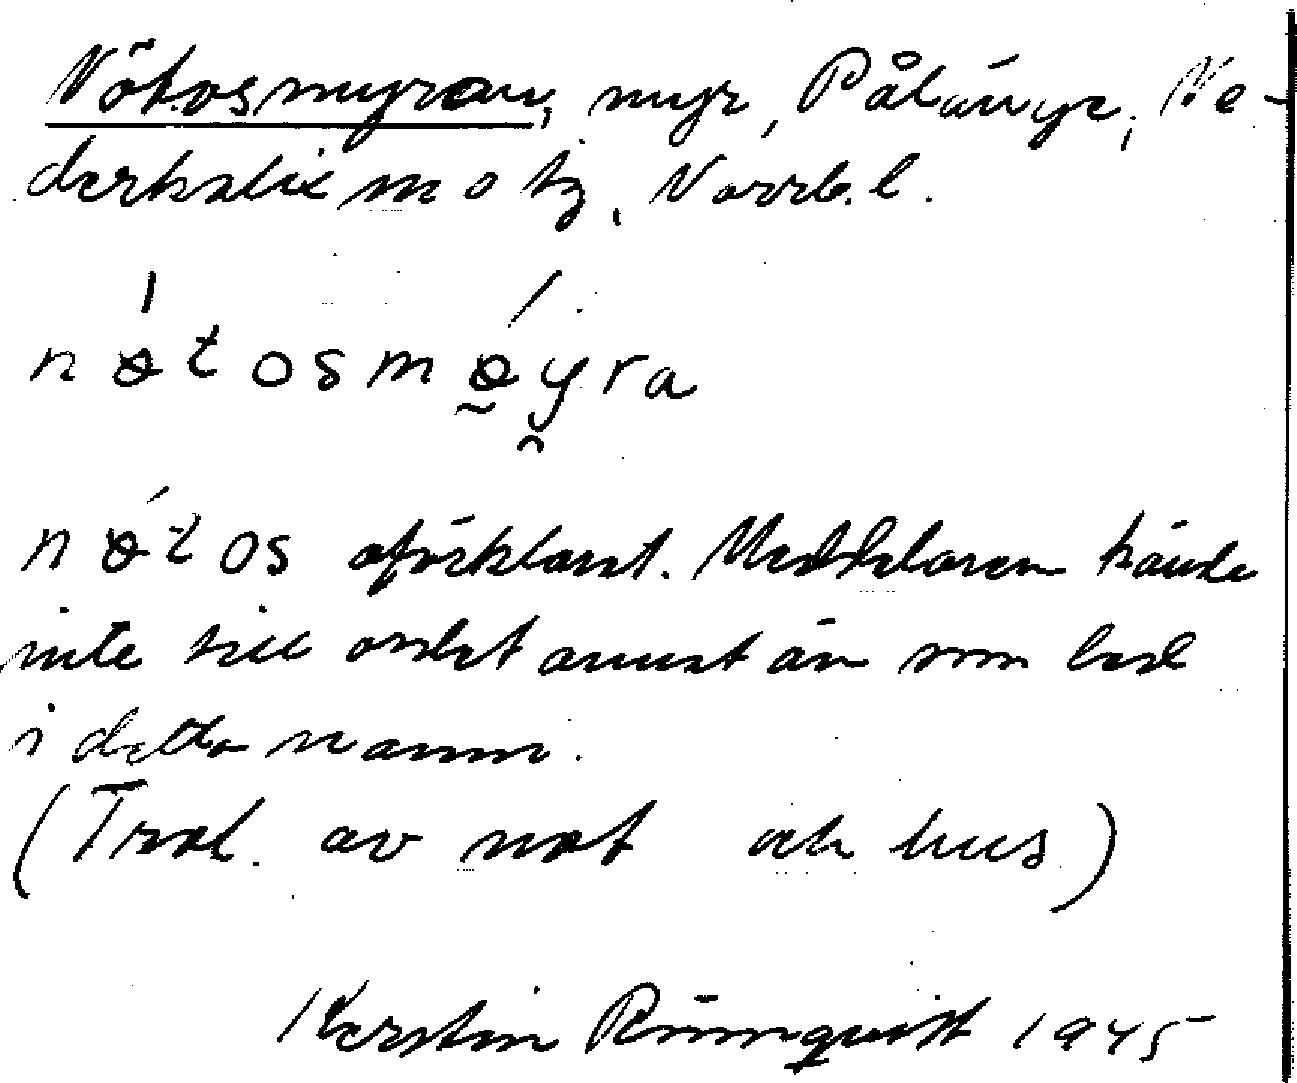 Nötosmyran, myr, Pålänge, Ne-
derkalix m o tg, Norrb. l.
nø´tosmø´yra
nø´tos oförklarat. Meddelaren kände
inte till ordet annat än som led
i detta namn.
(Trol. av not och hus)
Kerstin Rönnqvist 1945